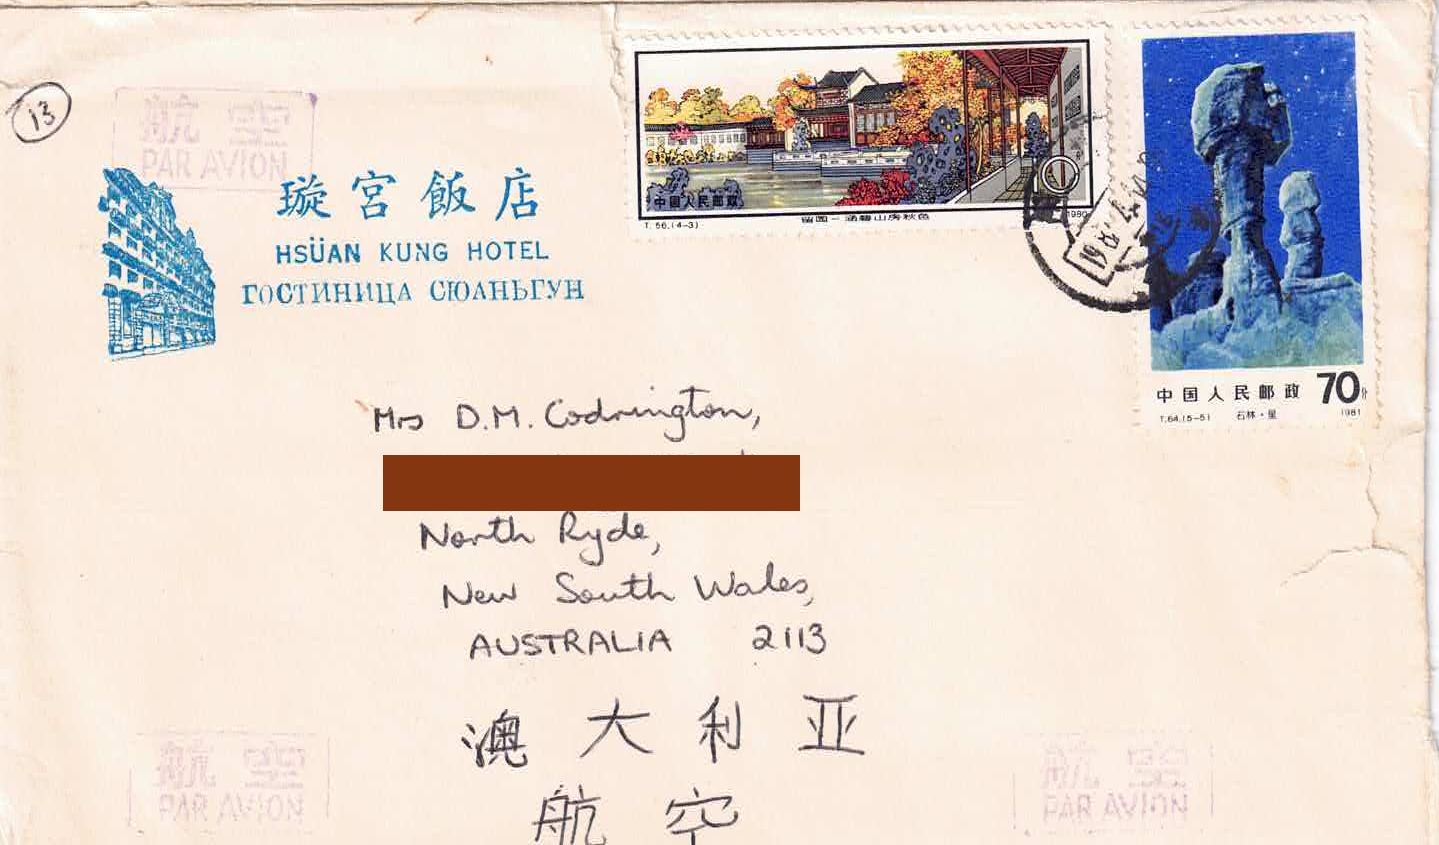 13
航空
PAR AVION
璇宮飯店
HSÜAN KUNG HOTEL
ГОСТИНИЦА СЮАНЬГУН
中国人民邮政
T.56.(4-3)
留园-涵碧山房秋色
1980
中国人民邮政 70分
T.64.(5-5) 石林·星 1981
Mrs D.M. Codrington,
North Ryde,
New South Wales,
AUSTRALIA 2113
澳大利亚
航空
航空
PAR AVION
航空
PAR AVION